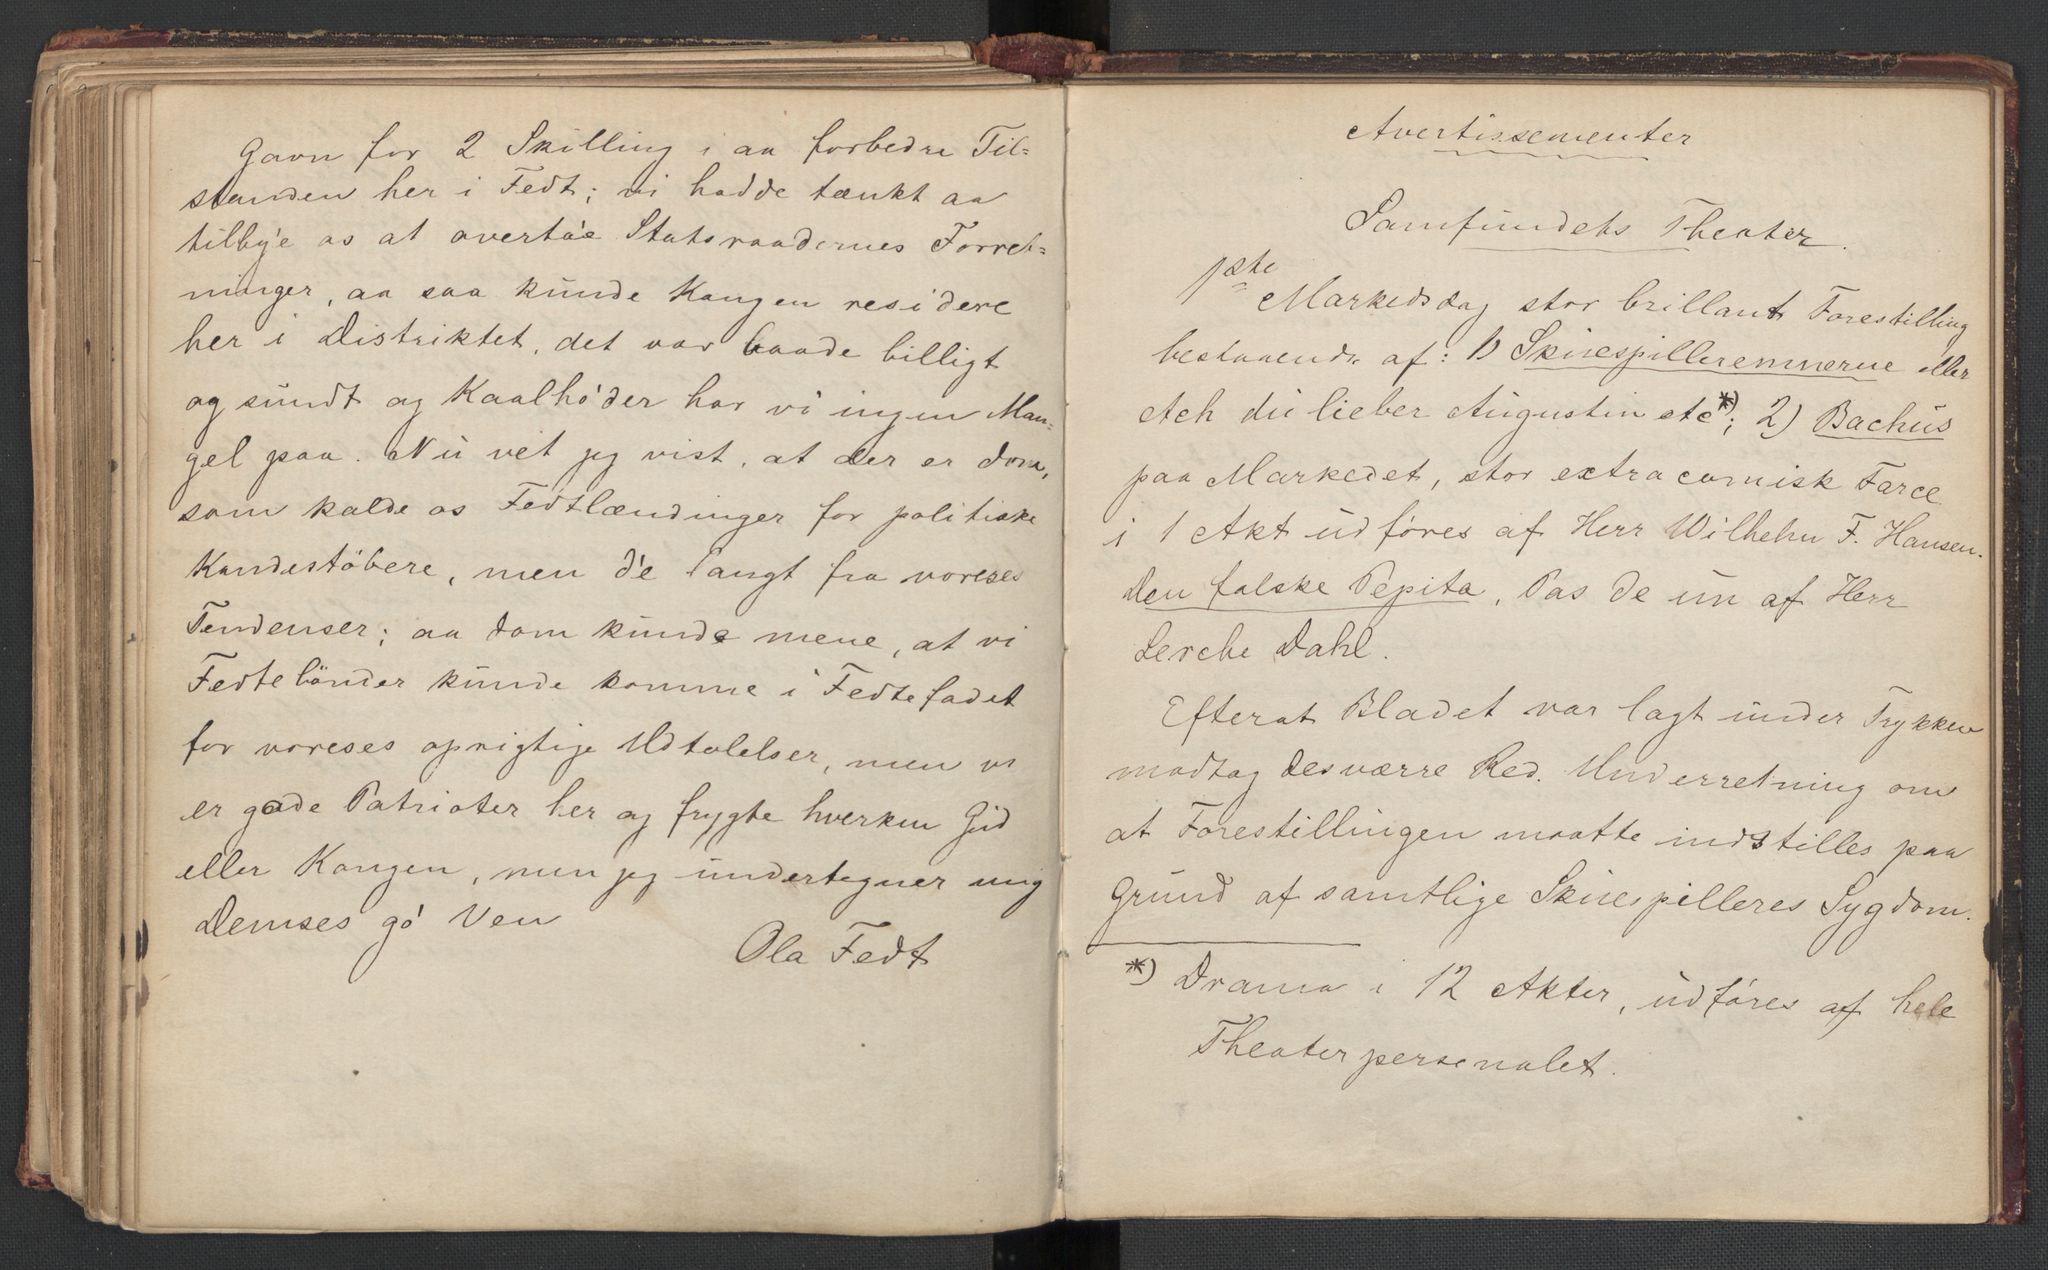 Gavn for 2 Skilling i aa forbedre Til=
standen her i Fedt; vi hadde tænkt aa
tilby'e os at overta'e Statsraadernes Forret=
ninger, aa saa kunde Kongen residere
her i Distriktet, det var baade billigt
og sundt og Kaalhöder har vi ingen Man=
gel paa. Nu vet jeg vist, at der er dom,
som kalde os Fedtlændinger for politiske
Kandestöbere, men d'e langt fra voreses
Tendenser; aa dom kunde mene, at vi
Fedtebönder kunde komme i Fedtefadet
for voreses oprigtige Udtalelser, men vi
er gode Patrioter her og frygte hverken Gud
eller Kongen, men jeg undertegner mig
Demses go' Ven
Ola Fedt
Avertissementer
Samfundets Theater.
1ste Markedsdag stor brillant Forestilling
bestaaende af: 1) Skuespilleremnerne eller
Ach du lieber Augustin etc*); 2) Bachus
paa Markedet, stor extra comisk Farce
i 1 Akt udføres af Herr Wilhelm F. Hansen.
Den falske Pepita, Pas de un af Herr
Lerche Dahl.
Efterat Bladet var lagt under Trykken
modtog desværre Red. Underretning om
at Forestillingen maatte indstilles paa
Grund af samtlige Skuespilleres Sygdom.
*) Drama i 12 Akter, udføres af hele
Theaterpersonalet.